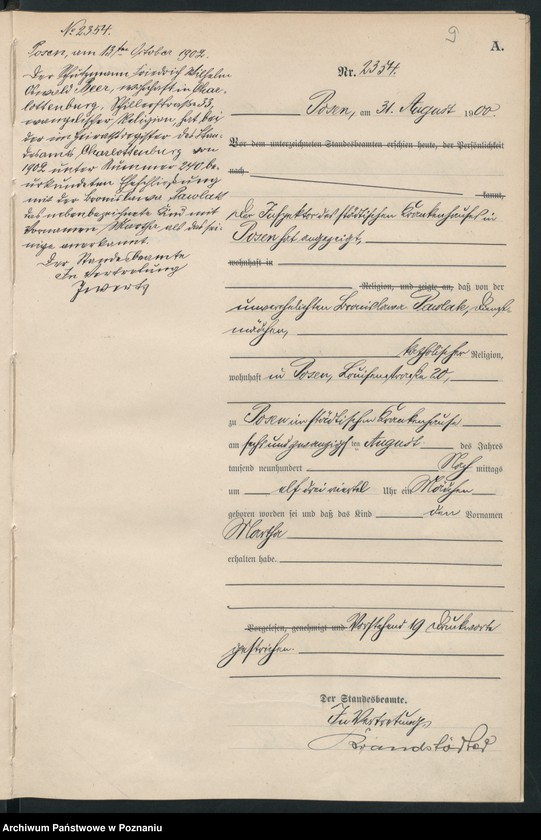 No 2354.
Posen, am 13ten October 1902.
Der Schutzmann Friedrich Wilhelm
Oswald Beer, wohnhaft in Char-
lottenburg, Schillerstraße
evangelischer Religion, hat bei
der im Heiratsregister des Stan-
desamts Charlottenburg von
1902 unter Nummer 240 be-
urkundeten Eheschließung
mit der Bronislawa Pawlak
das nebenbezeichnete Kind mit
Vornamen Martha als das sei-
nige anerkannt.
Der Standesbeamte
In Vertretung
9
A.
Nr. 2354.
Posen, am 31. August 1900.
Vor dem unterzeichneten Standesbeamten erschien heute, der Persönlichkeit
nach
kannt,
Der Inspektor des städtischen Krankenhauses in
Posen hat angezeigt,
wohnhaft in
Religion, und zeigte an, daß von der
unverehelichten Bronislawa Pawlak, Dienst-
mädchen,
katholischer Religion,
wohnhaft in Posen, Louisenstraße 20,
zu Posen im städtischen Krankenhause
am sechsundzwanzigsten August des Jahres
tausend neunhundert Nach mittags
um elf drei viertel Uhr ein Mädchen
geboren worden sei und daß das Kind den Vornamen
Martha
erhalten habe.
Vorgelesen, genehmigt und Vorstehend 19 Druckworte
gestrichen.
Der Standesbeamte.
In Vertretung
Brandstädter
Archiwum Państwowe w Poznaniu